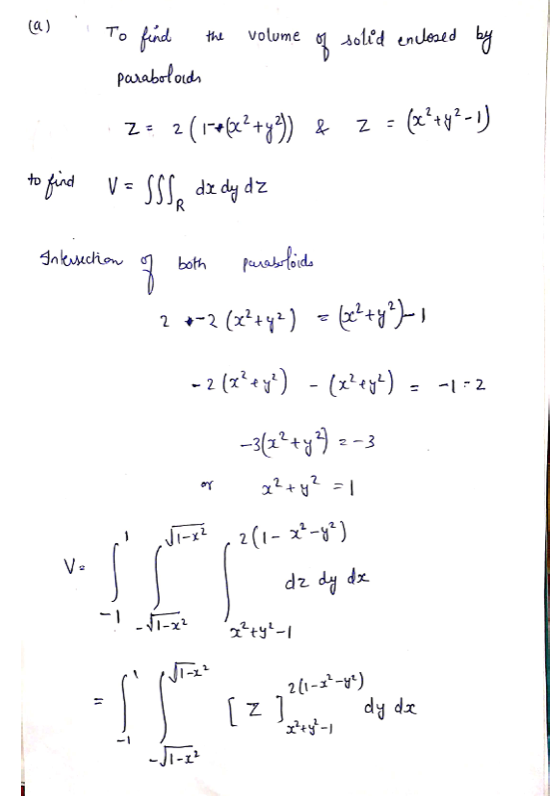 (a) To find the volume of solid enclosed by
paraboloids
z = 2(1-(x²+y²)) & z = (x²+y²-1)
to find V = ∭_R dx dy dz
Intersection of both paraboloids
2 - 2(x²+y²) = (x²+y²)-1
-2(x²+y²) - (x²+y²) = -1-2
-3(x²+y²) = -3
or x²+y² = 1
V = ∫_{-1}^{1} ∫_{-√(1-x²)}^{√(1-x²)} ∫_{x²+y²-1}^{2(1-x²-y²)} dz dy dx
= ∫_{-1}^{1} ∫_{-√(1-x²)}^{√(1-x²)} [z]_{x²+y²-1}^{2(1-x²-y²)} dy dx